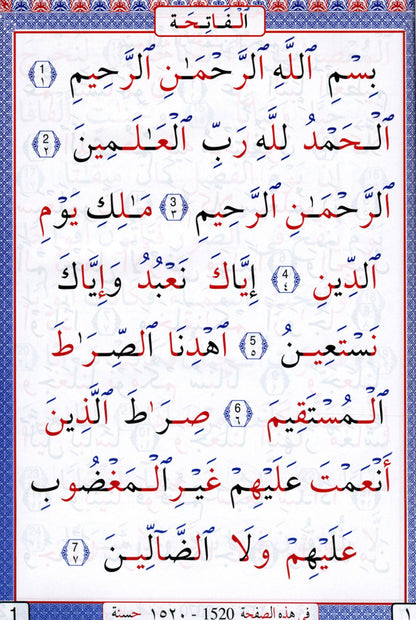 ٱلْفَاتِحَة
بِسْمِ ٱللَّهِ ٱلرَّحْمَـٰنِ ٱلرَّحِيمِ 1 ١
ٱلْحَمْدُ لِلَّهِ رَبِّ ٱلْعَـٰلَمِينَ 2 ٢
ٱلرَّحْمَـٰنِ ٱلرَّحِيمِ 3 ٣ مَـٰلِكِ يَوْمِ
ٱلدِّينِ 4 ٤ إِيَّاكَ نَعْبُدُ وَإِيَّاكَ
نَسْتَعِينُ 5 ٥ ٱهْدِنَا ٱلصِّرَٰطَ
ٱلْمُسْتَقِيمَ 6 ٦ صِرَٰطَ ٱلَّذِينَ
أَنْعَمْتَ عَلَيْهِمْ غَيْرِ ٱلْمَغْضُوبِ
عَلَيْهِمْ وَلَا ٱلضَّآلِّينَ 7 ٧
١ في هذه الصفحة 1520 - ١٥٢٠ حسنة 1